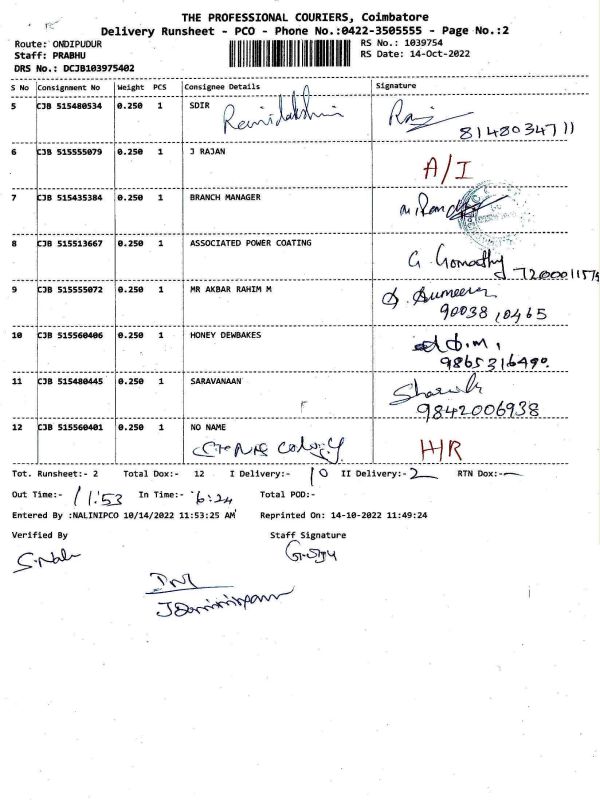 THE PROFESSIONAL COURIERS, Coimbatore
Delivery Runsheet - PCO - Phone No.:0422-3505555 - Page No.:2
Route: ONDIPUDUR RS No.: 1039754
Staff: PRABHU RS Date: 14-Oct-2022
DRS No.: DCJB103975402
S No Consignment No Weight PCS Consignee Details Signature
5 CJB 515480534 0.250 1 SDIR
8148034711
6 CJB 515555079 0.250 1 J RAJAN
A/I
7 CJB 515435384 0.250 1 BRANCH MANAGER
8 CJB 515513667 0.250 1 ASSOCIATED POWER COATING
G. Gomathy
7200011579
9 CJB 515555072 0.250 1 MR AKBAR RAHIM M
9003810465
10 CJB 515560406 0.250 1 HONEY DEWBAKES
9865316490.
11 CJB 515480445 0.250 1 SARAVANAAN
9842006938
12 CJB 515560401 0.250 1 NO NAME
H/R
Tot. Runsheet:- 2 Total Dox:- 12 I Delivery:- 10 II Delivery:- 2 RTN Dox:- —
Out Time:- 11:53 In Time:- 6:24 Total POD:-
Entered By :NALINIPCO 10/14/2022 11:53:25 AM Reprinted On: 14-10-2022 11:49:24
Verified By Staff Signature